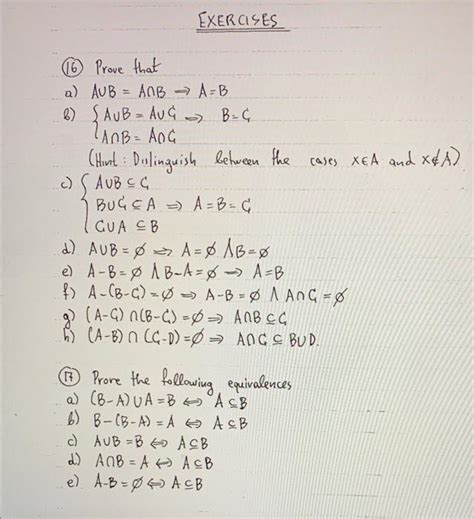 EXERCISES
(16) Prove that
a) A∪B = A∩B ⇒ A=B
b) { A∪B = A∪C ⇒ B=C
A∩B = A∩C
(Hint: Distinguish between the cases x∈A and x∉A).
c) { A∪B ⊆ C
B∪C ⊆ A ⇒ A=B=C
C∪A ⊆ B
d) A∪B = ∅ ⇒ A=∅ ∧ B=∅
e) A-B=∅ ∧ B-A=∅ ⇒ A=B
f) A-(B-C)=∅ ⇒ A-B=∅ ∧ A∩C=∅
g) (A-C)∩(B-C)=∅ ⇒ A∩B⊆C
h) (A-B)∩(C-D)=∅ ⇒ A∩C⊆B∪D.
(17) Prove the following equivalences
a) (B-A)∪A=B ⇔ A⊆B
b) B-(B-A)=A ⇔ A⊆B
c) A∪B=B ⇔ A⊆B
d) A∩B=A ⇔ A⊆B
e) A-B=∅ ⇔ A⊆B